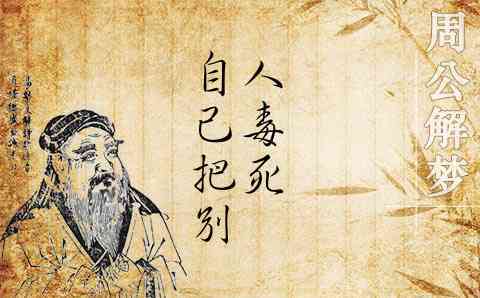 周公解梦
自己把别
人毒死